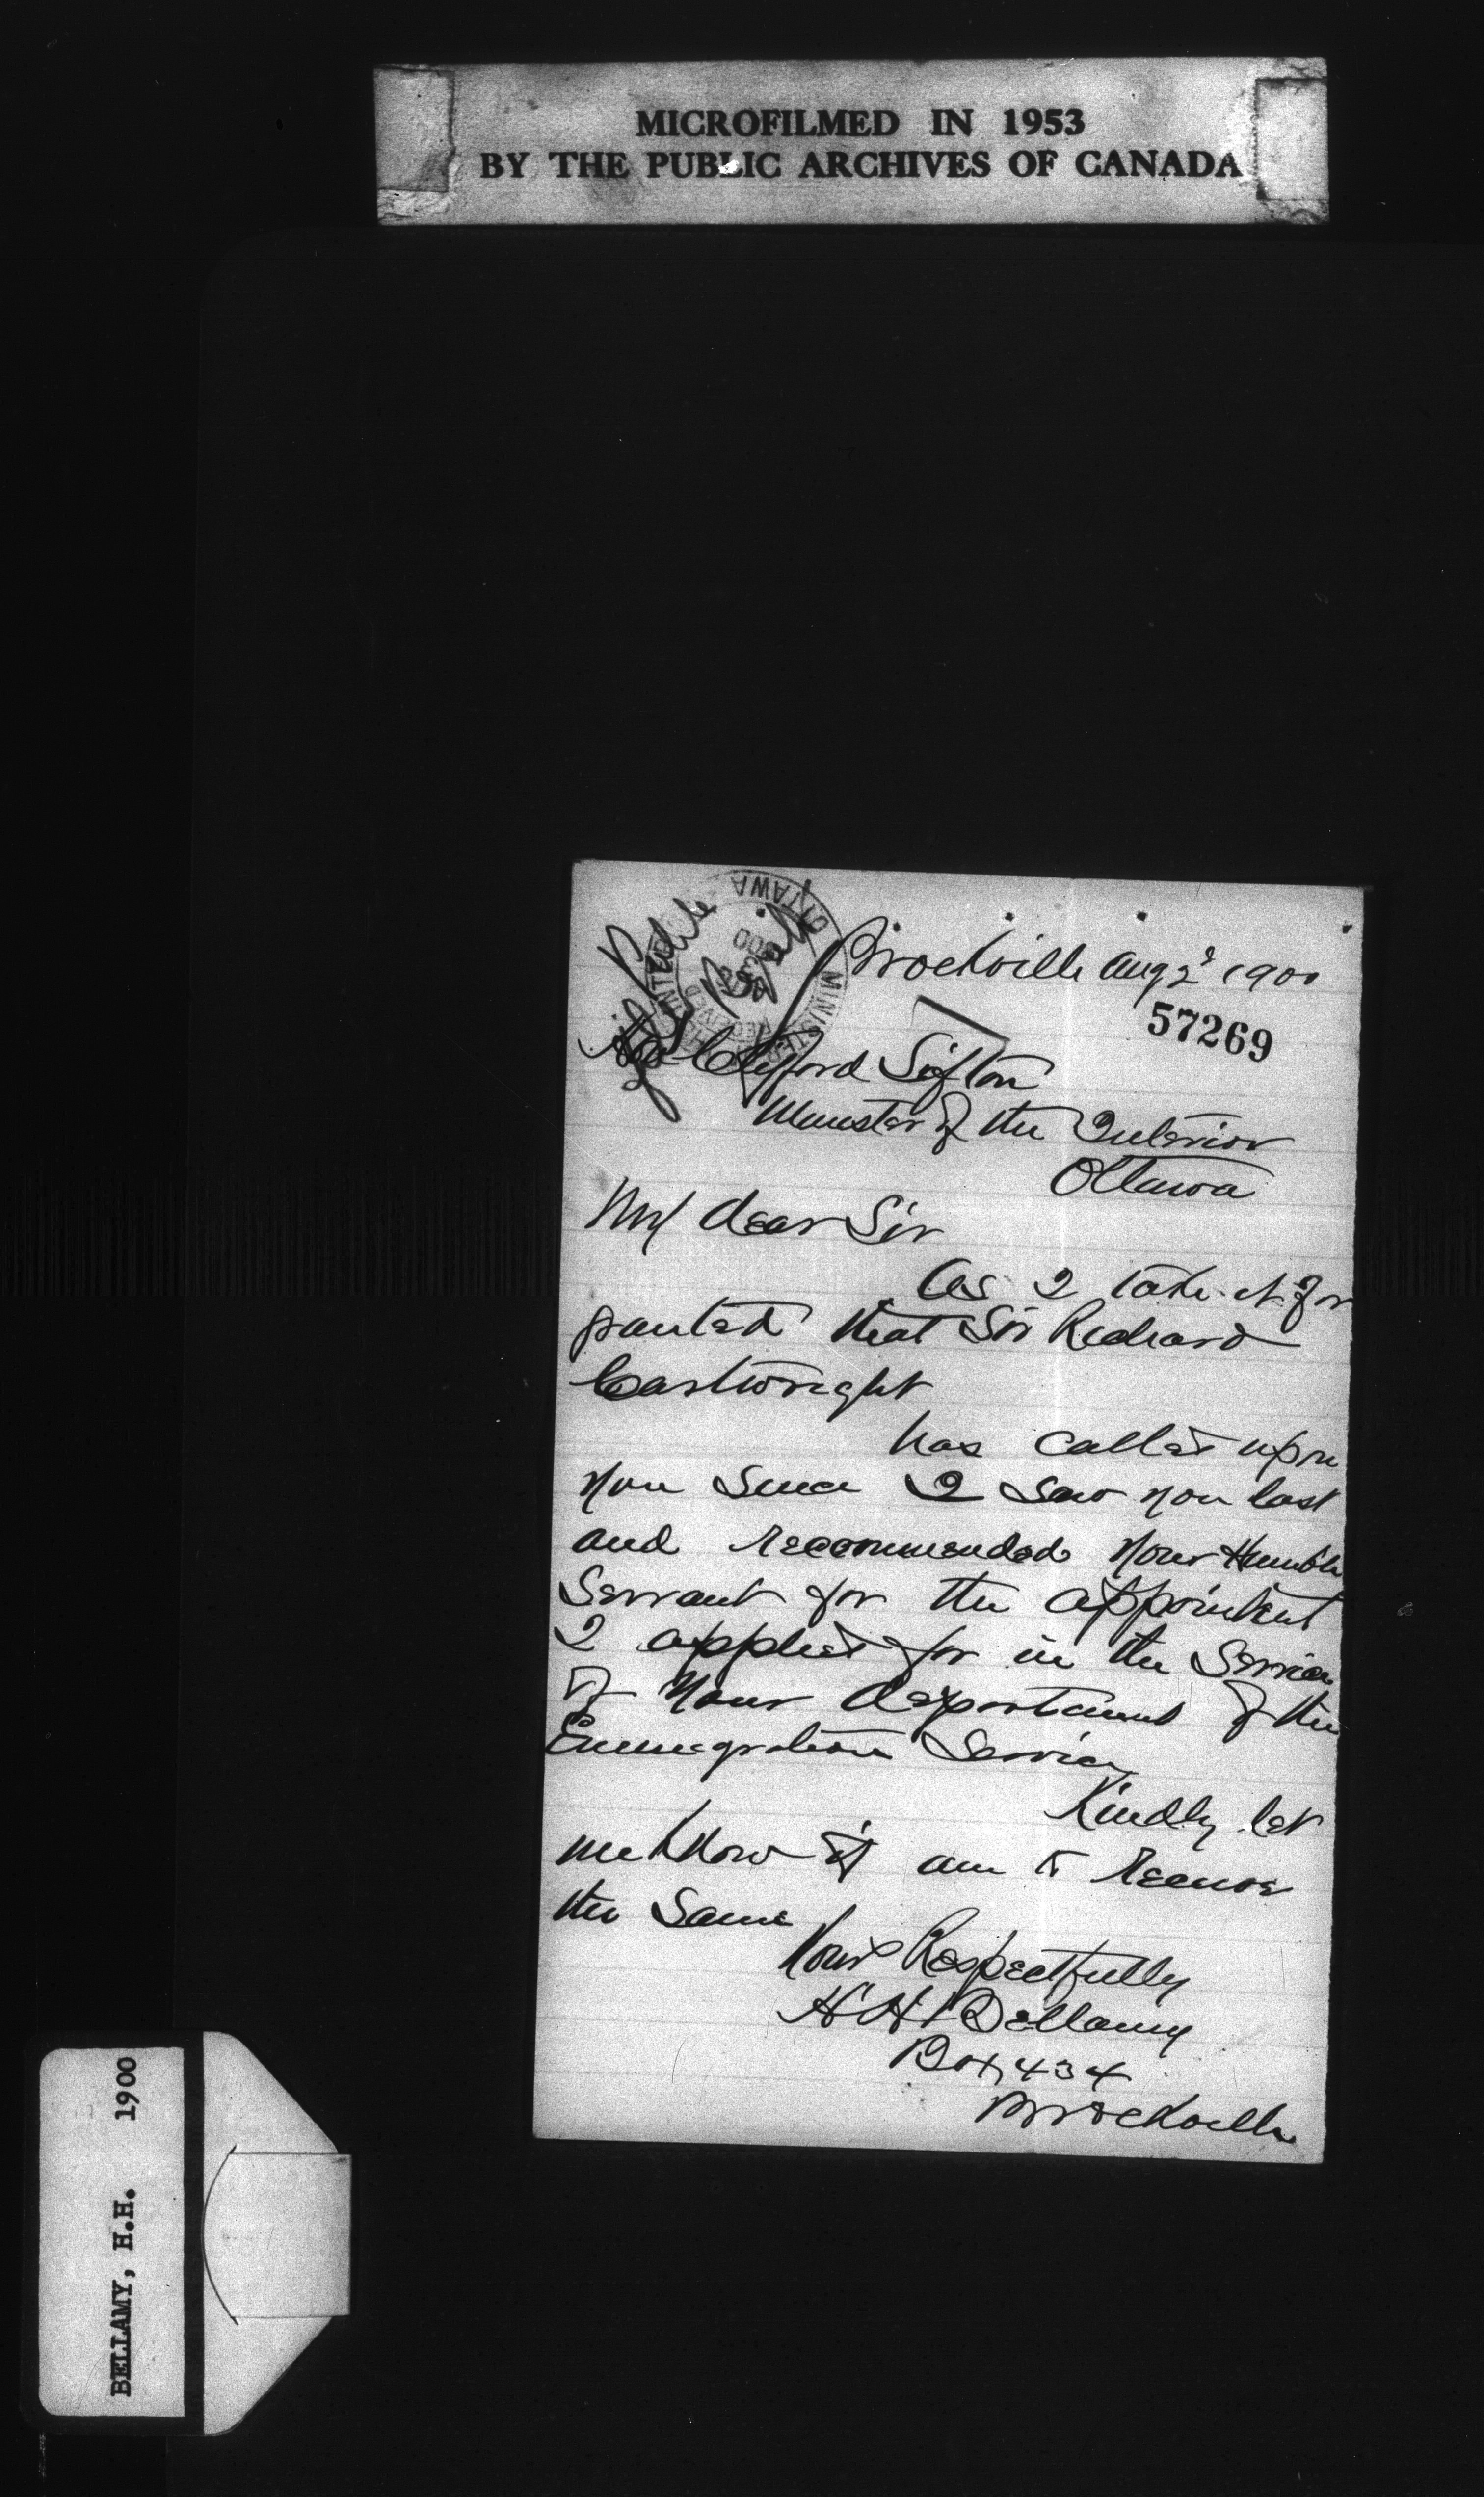 MICROFILMED IN 1953
BY THE PUBLIC ARCHIVES OF CANADA
OTTAWA
MINISTER
RECEIVED
Brockville Aug 2d 1900
57269
Clifford Sifton
Minister of the Interior
Ottawa
My dear Sir
As I take it for
granted that Sir Richard
Cartwright
has called upon
you since I saw you last
and recommended your Humble
Servant for the appointent
I applied for in the Service
of your department of the
Emmegration Service
Kindly let
me know if am to receive
the Same
Yours Respectfully
H H Bellamy
Box 434
Brockville
BELLAMY, H.H. 1900